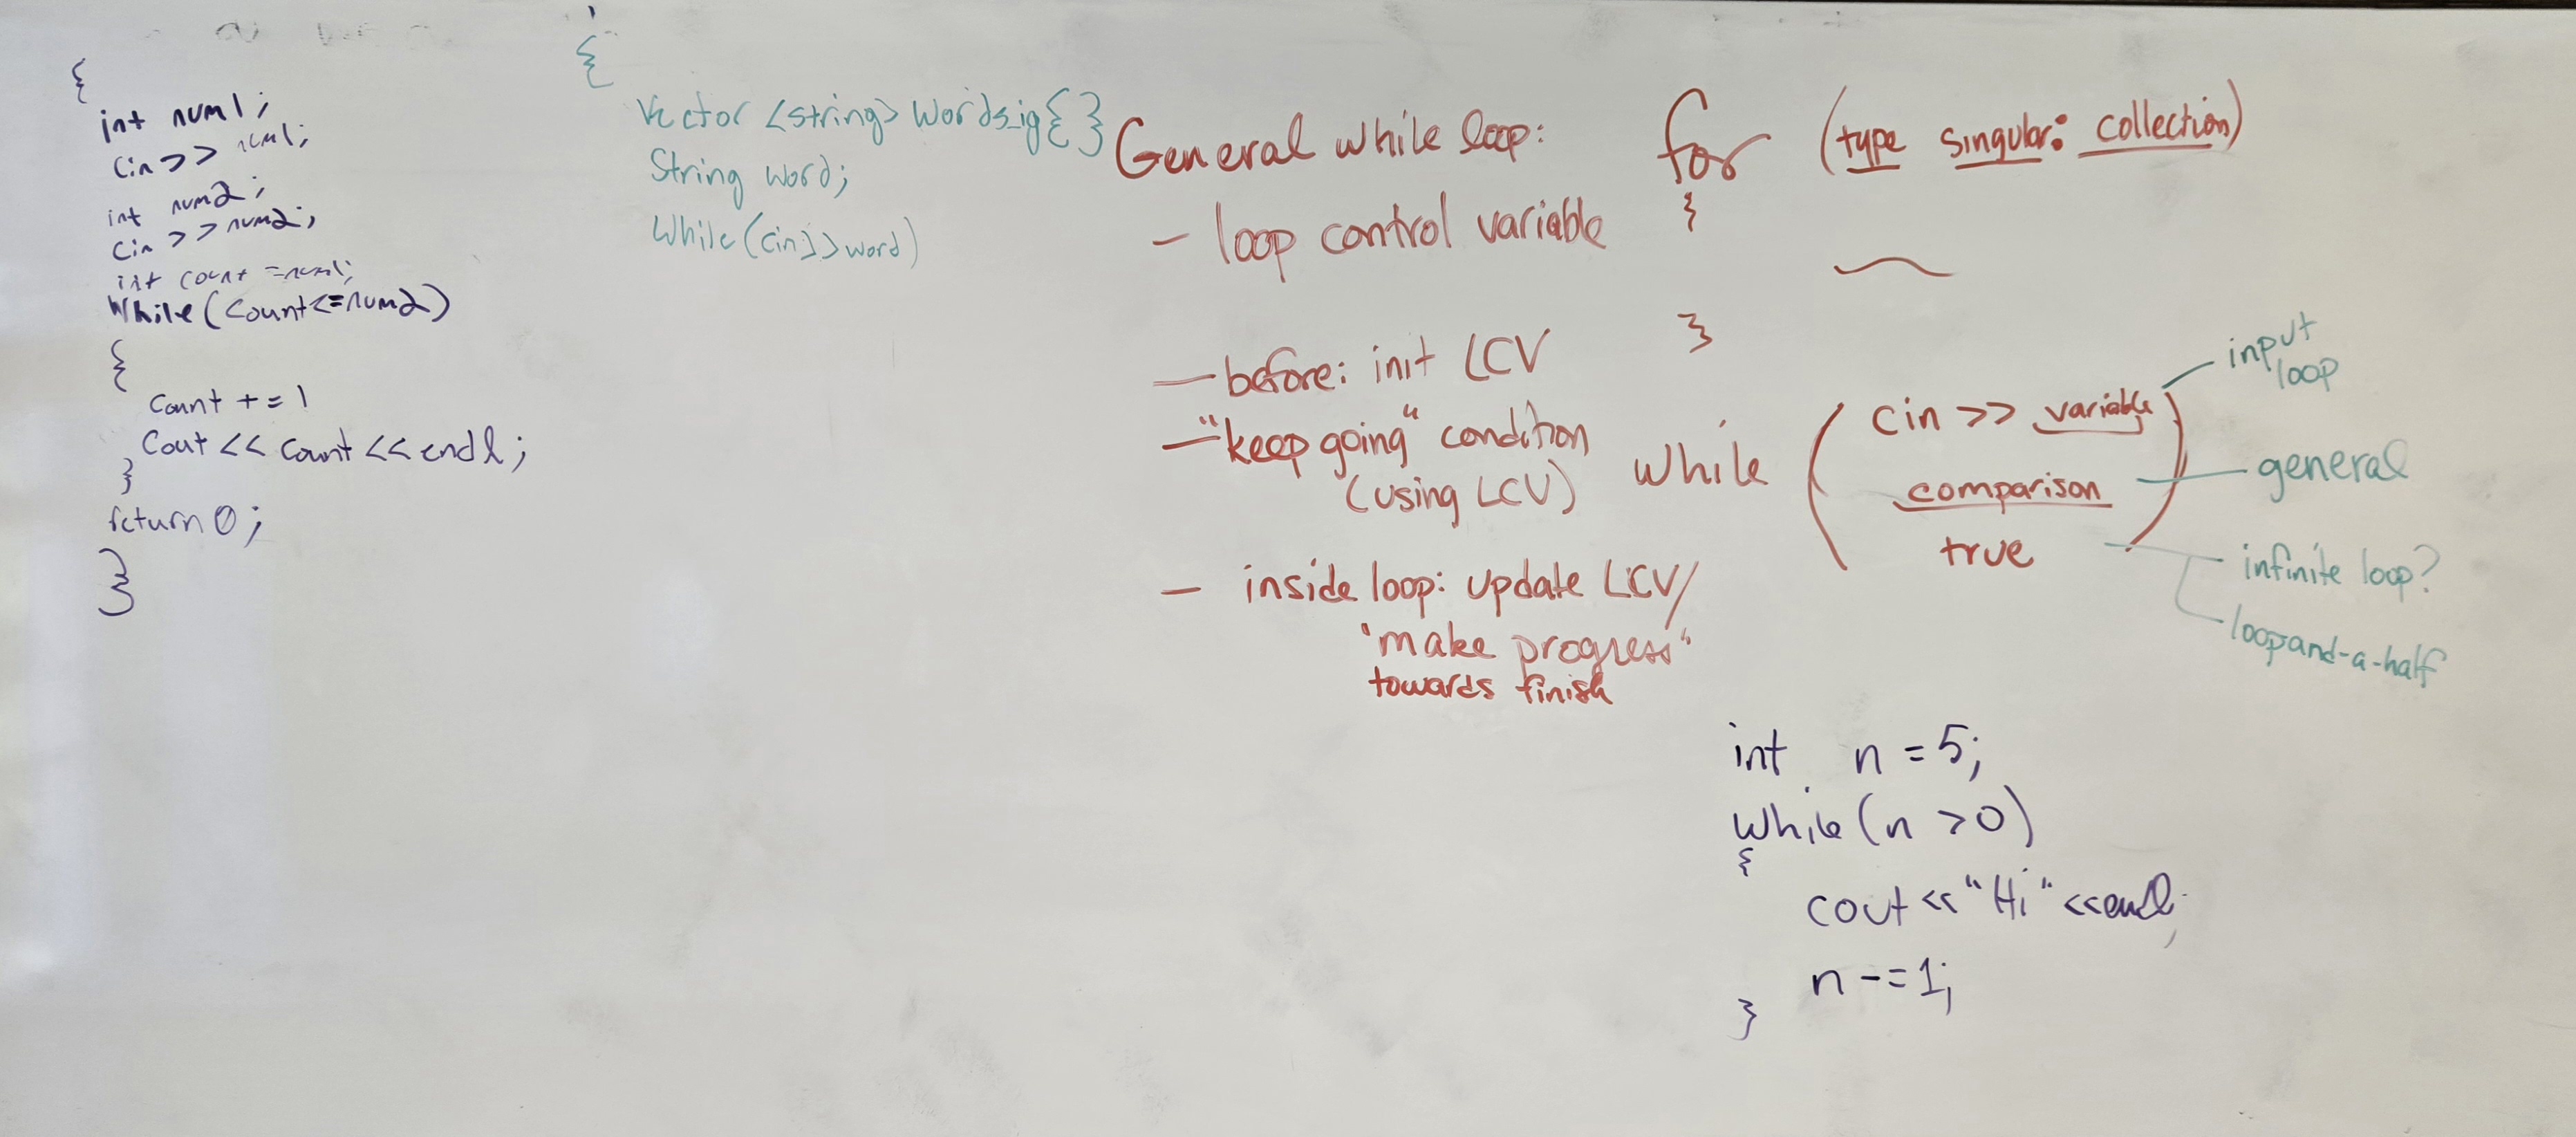 {
int num1;
cin >> num1;
int num2;
cin >> num2;
int count = num1;
While (Count <= num2)
{
Count += 1
Cout << Count << endl;
}
return 0;
}
{
Vector <string> Words_ig{ }
String word;
While (cin >> word)
General while loop:
- loop control variable
- before: init LCV
- "keep going" condition
(using LCV)
- inside loop: update LCV/
"make progress"
towards finish
for (type singular: collection)
{
}
while ( cin >> variable
comparison
true )
input
loop
general
infinite loop?
loop-and-a-half
int n = 5;
while (n > 0)
{
cout << "Hi" << endl;
n -= 1;
}